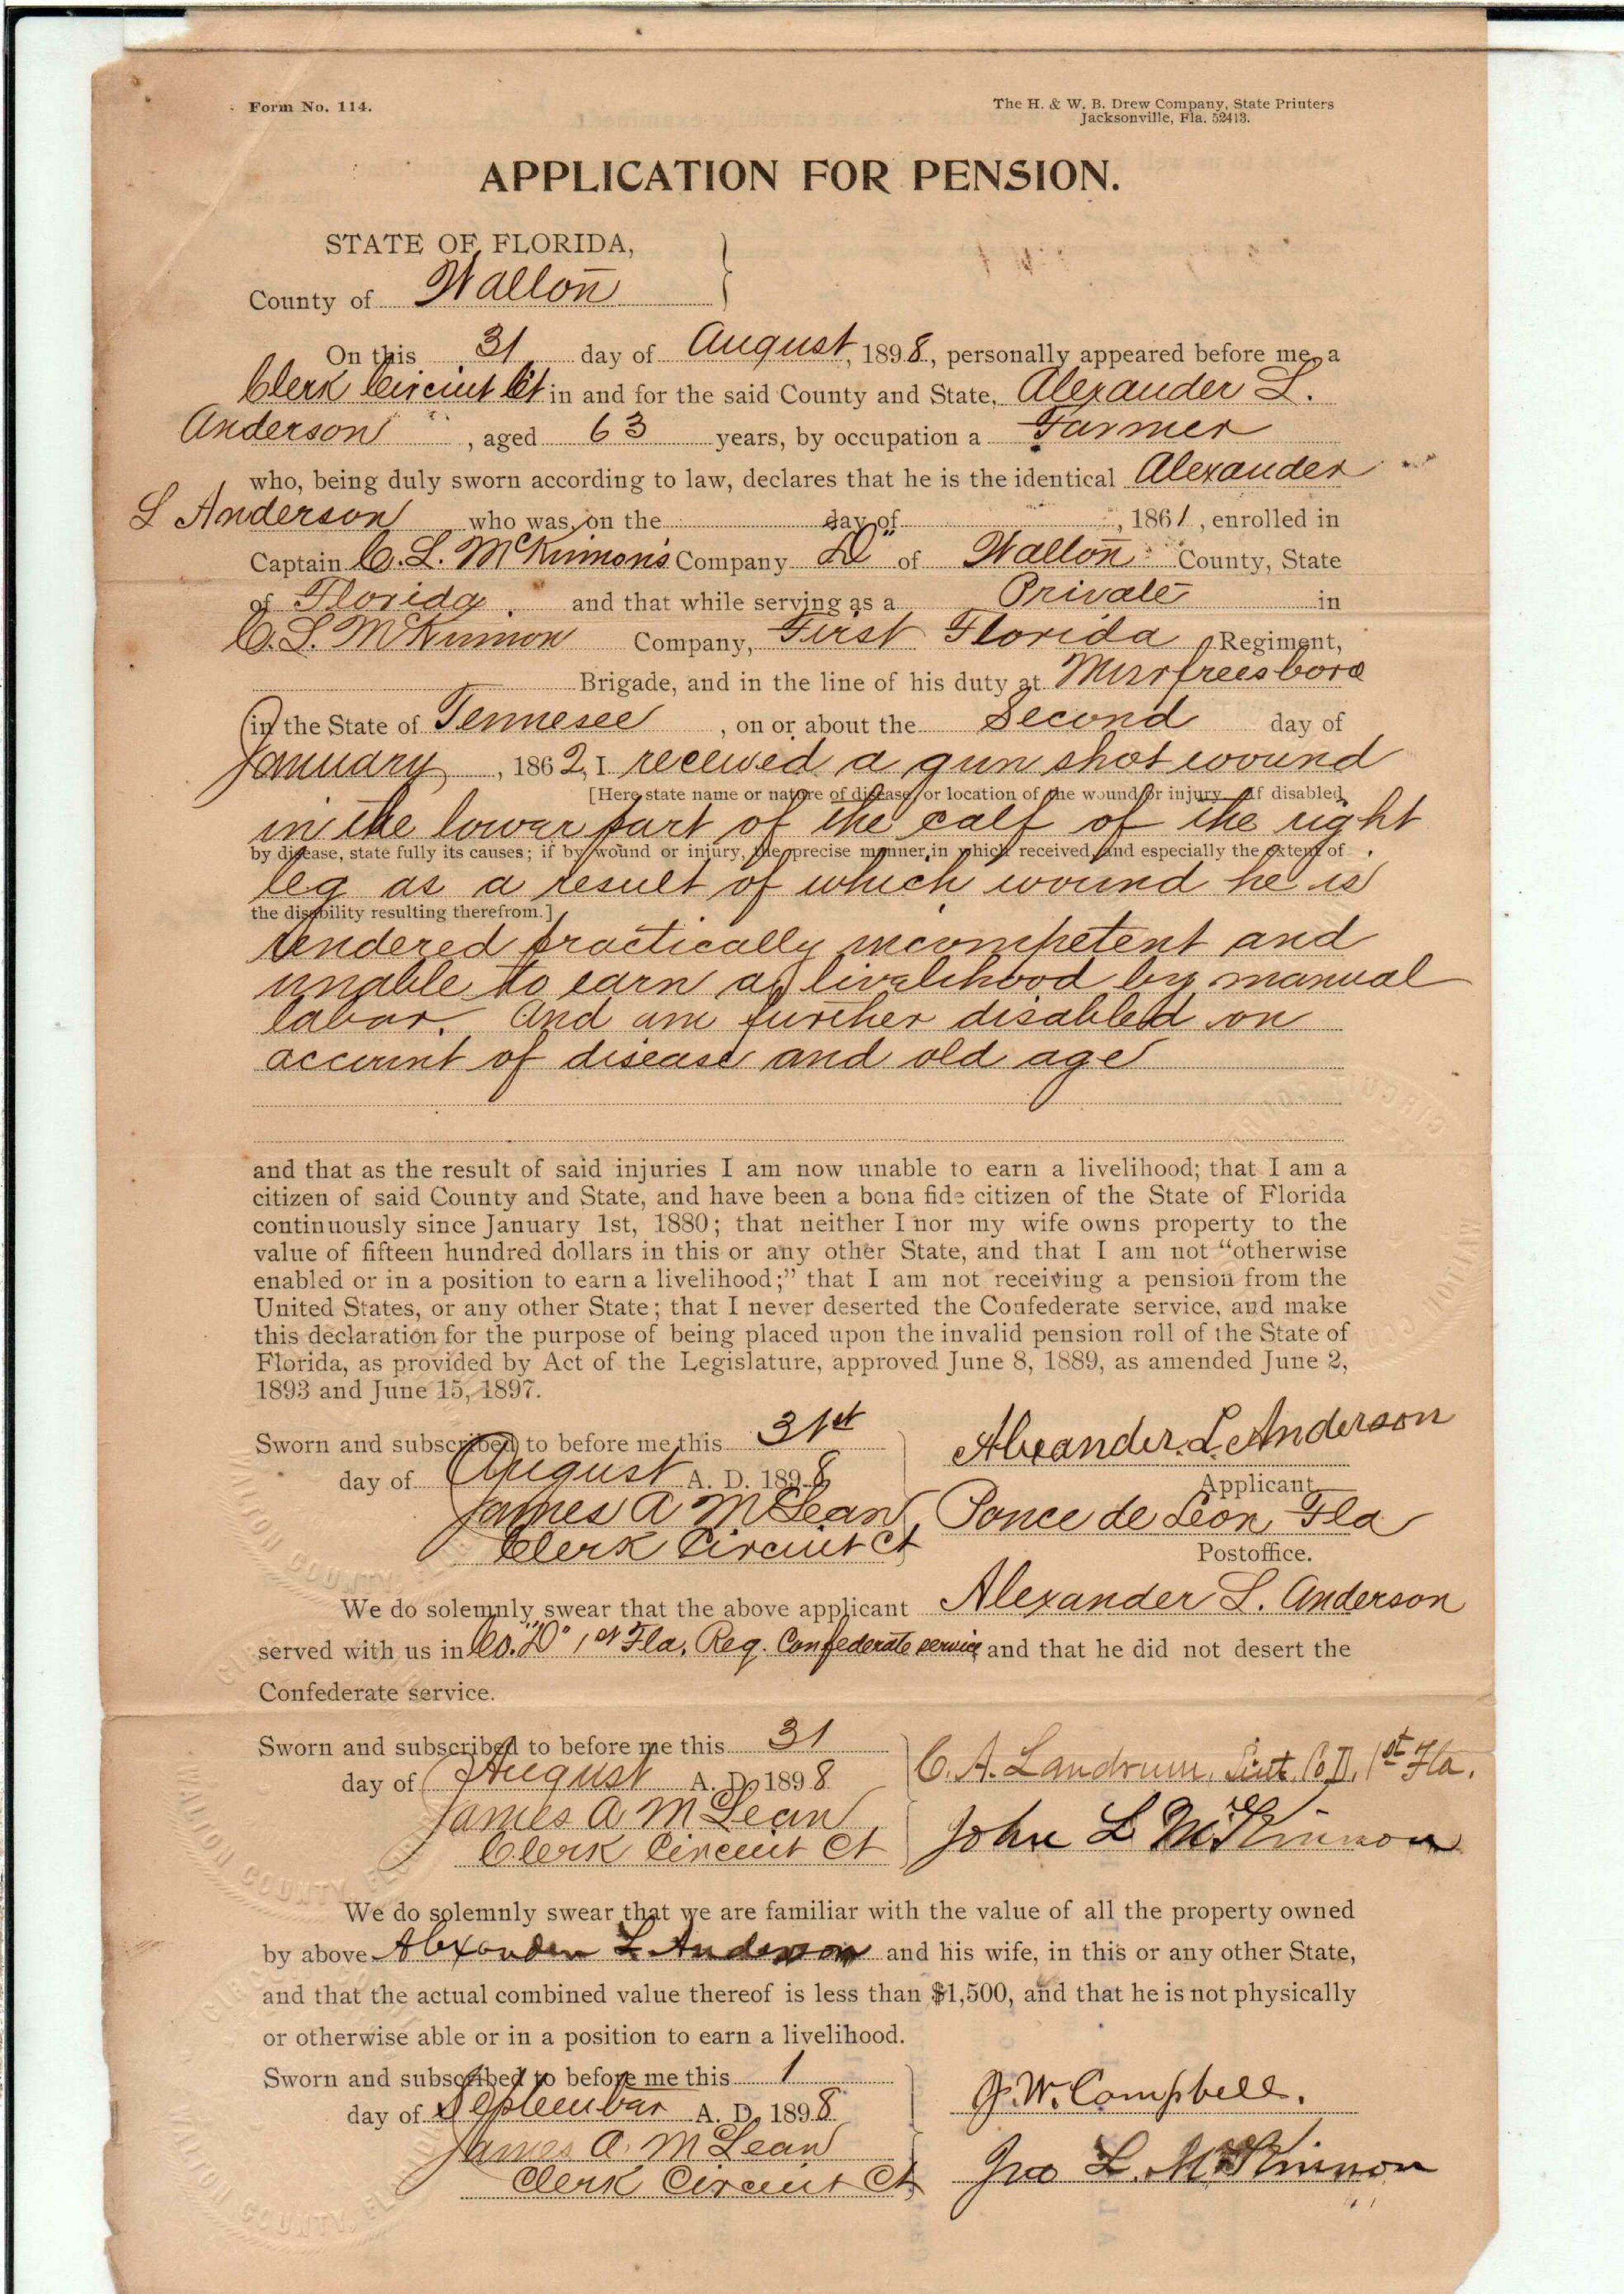 Form No. 114.
The H. & W. B. Drew Company, State Printers
Jacksonville, Fla. 52413.
APPLICATION FOR PENSION.
STATE OF FLORIDA,
County of Walton
On this 31 day of August, 1898., personally appeared before me, a
Clerk Circuit Ct in and for the said County and State, Alexander L.
Anderson, aged 63 years, by occupation a Farmer
who, being duly sworn according to law, declares that he is the identical Alexander
L Anderson who was, on the day of , 1861, enrolled in
Captain C. L. McKinnon's Company "D" of Walton County, State
of Florida. and that while serving as a Private in
C. L. McKinnon Company, First Florida Regiment,
Brigade, and in the line of his duty at Murfreesboro
in the State of Tennesee, on or about the Second day of
January, 1862, I received a gun shot wound
[Here state name or nature of disease, or location of the wound or injury. If disabled
in the lower part of the calf of the right
by disease, state fully its causes; if by wound or injury, the precise manner in which received, and especially the extent of
leg as a result of which wound he is
the disability resulting therefrom.]
rendered practically incompetent and
unable to earn a livelihood by manual
labor. And am further disabled on
account of disease and old age
and that as the result of said injuries I am now unable to earn a livelihood; that I am a
citizen of said County and State, and have been a bona fide citizen of the State of Florida
continuously since January 1st, 1880; that neither I nor my wife owns property to the
value of fifteen hundred dollars in this or any other State, and that I am not "otherwise
enabled or in a position to earn a livelihood;" that I am not receiving a pension from the
United States, or any other State; that I never deserted the Confederate service, and make
this declaration for the purpose of being placed upon the invalid pension roll of the State of
Florida, as provided by Act of the Legislature, approved June 8, 1889, as amended June 2,
1893 and June 15, 1897.
Sworn and subscribed to before me this 31st
day of August A. D. 1898
James A McLean
Clerk Circuit Ct
Alexander. L. Anderson
Applicant
Ponce de Leon Fla
Postoffice.
We do solemnly swear that the above applicant Alexander L. Anderson
served with us in Co. "D" 1st Fla. Reg. Confederate service and that he did not desert the
Confederate service.
Sworn and subscribed to before me this 31
day of August A. D. 1898
James A McLean
Clerk Circuit Ct
C. A. Landrum, Lieut. Co D, 1st Fla.
John L McKinnon
We do solemnly swear that we are familiar with the value of all the property owned
by above Alexander L Anderson and his wife, in this or any other State,
and that the actual combined value thereof is less than $1,500, and that he is not physically
or otherwise able or in a position to earn a livelihood.
Sworn and subscribed to before me this 1
day of September A. D. 1898
James A. McLean
Clerk Circuit Ct
J. W. Campbell.
Jno L. McKinnon